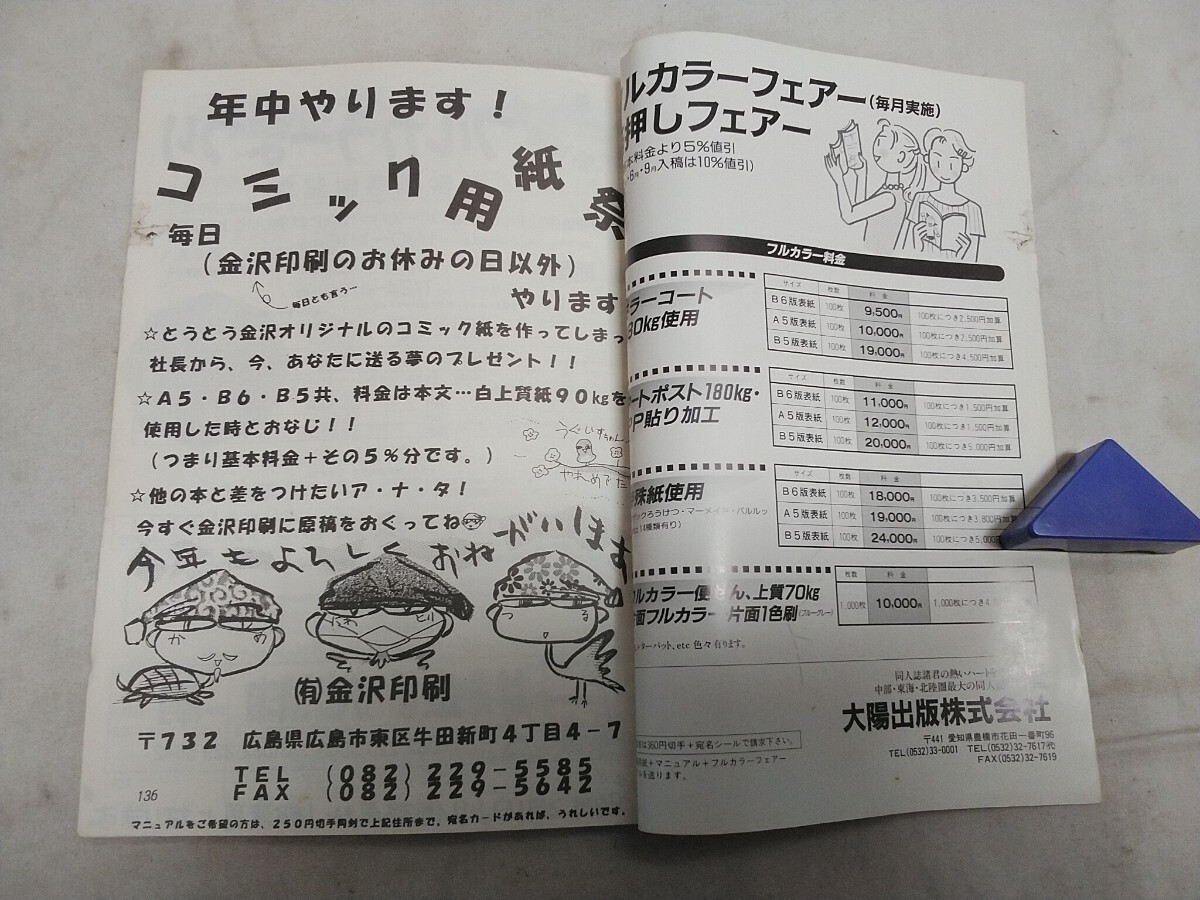 年中やります!
コミック用紙祭
毎日
(金沢印刷のお休みの日以外)
毎日とも言う…
やります
☆とうとう金沢オリジナルのコミック紙を作ってしまっ
社長から、今、あなたに送る夢のプレゼント!!
☆A5・B6・B5共、料金は本文…白上質紙90kgを
使用した時とおなじ!!
(つまり基本料金+その5%分です。)
うぐいすちゃん
やれめでた
☆他の本と差をつけたいア・ナ・タ!
今すぐ金沢印刷に原稿をおくってね
今年もよろしくおねがいします
かめ
にわとり
つる
㈲金沢印刷
〒732 広島県広島市東区牛田新町4丁目4-7
TEL (082)229-5585
FAX (082)229-5642
136
マニュアルをご希望の方は、250円切手同封で上記住所まで。宛名カードがあれば、うれしいです。
ルカラーフェアー(毎月実施)
押しフェアー
本料金より5%値引
・6月・9月入稿は10%値引)
フルカラー料金
ラーコート
80kg使用
サイズ 枚数 料金
B6版表紙 100枚 9,500円 100枚につき2,500円加算
A5版表紙 100枚 10,000円 100枚につき2,500円加算
B5版表紙 100枚 19,000円 100枚につき4,500円加算
ートポスト180kg・
PP貼り加工
サイズ 枚数 料金
B6版表紙 100枚 11,000円 100枚につき1,500円加算
A5版表紙 100枚 12,000円 100枚につき1,500円加算
B5版表紙 100枚 20,000円 100枚につき5,000円加算
殊紙使用
ックろうけつ・マーメイド・パルルッ
14種類有り)
サイズ 枚数 料金
B6版表紙 100枚 18,000円 100枚につき3,500円加算
A5版表紙 100枚 19,000円 100枚につき3,800円加算
B5版表紙 100枚 24,000円 100枚につき5,000
ルカラー便せん、上質70kg
面フルカラー片面1色刷(ブルーグレー)
枚数 料金
1,000枚 10,000円 1,000枚につき4
ターパット、etc 色々有ります。
同人誌諸君の熱いハート
中部・東海・北陸圏最大の同人
大陽出版株式会社
〒441 愛知県豊橋市花田一番町96
TEL(0532)33-0001 TEL(0532)32-7617代
FAX(0532)32-7619
は360円切手+宛名シールで請求下さい。
用紙+マニュアル+フルカラーフェアー
を送ります。